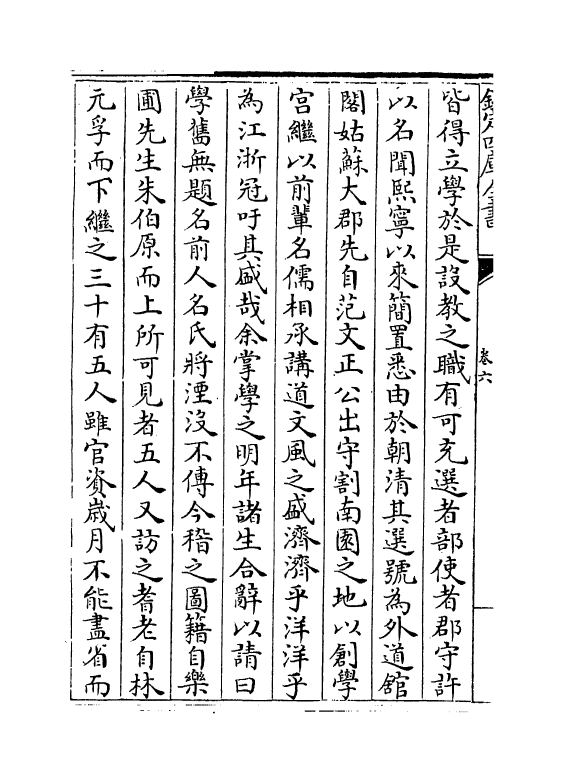 欽定四庫全書
卷六
皆得立學於是設教之職有可充選者部使者郡守許
以名聞熙寧以來簡置悉由於朝清其選號為外道舘
閣姑蘇大郡先自范文正公出守割南園之地以創學
宫繼以前輩名儒相承講道文風之盛濟濟乎洋洋乎
為江浙冠吁其盛哉余掌學之明年諸生合辭以請曰
學舊無題名前人名氏將湮没不傳今稽之圖籍自樂
圃先生朱伯原而上所可見者五人又訪之耆老自林
元孚而下繼之三十有五人雖官資歲月不能盡省而